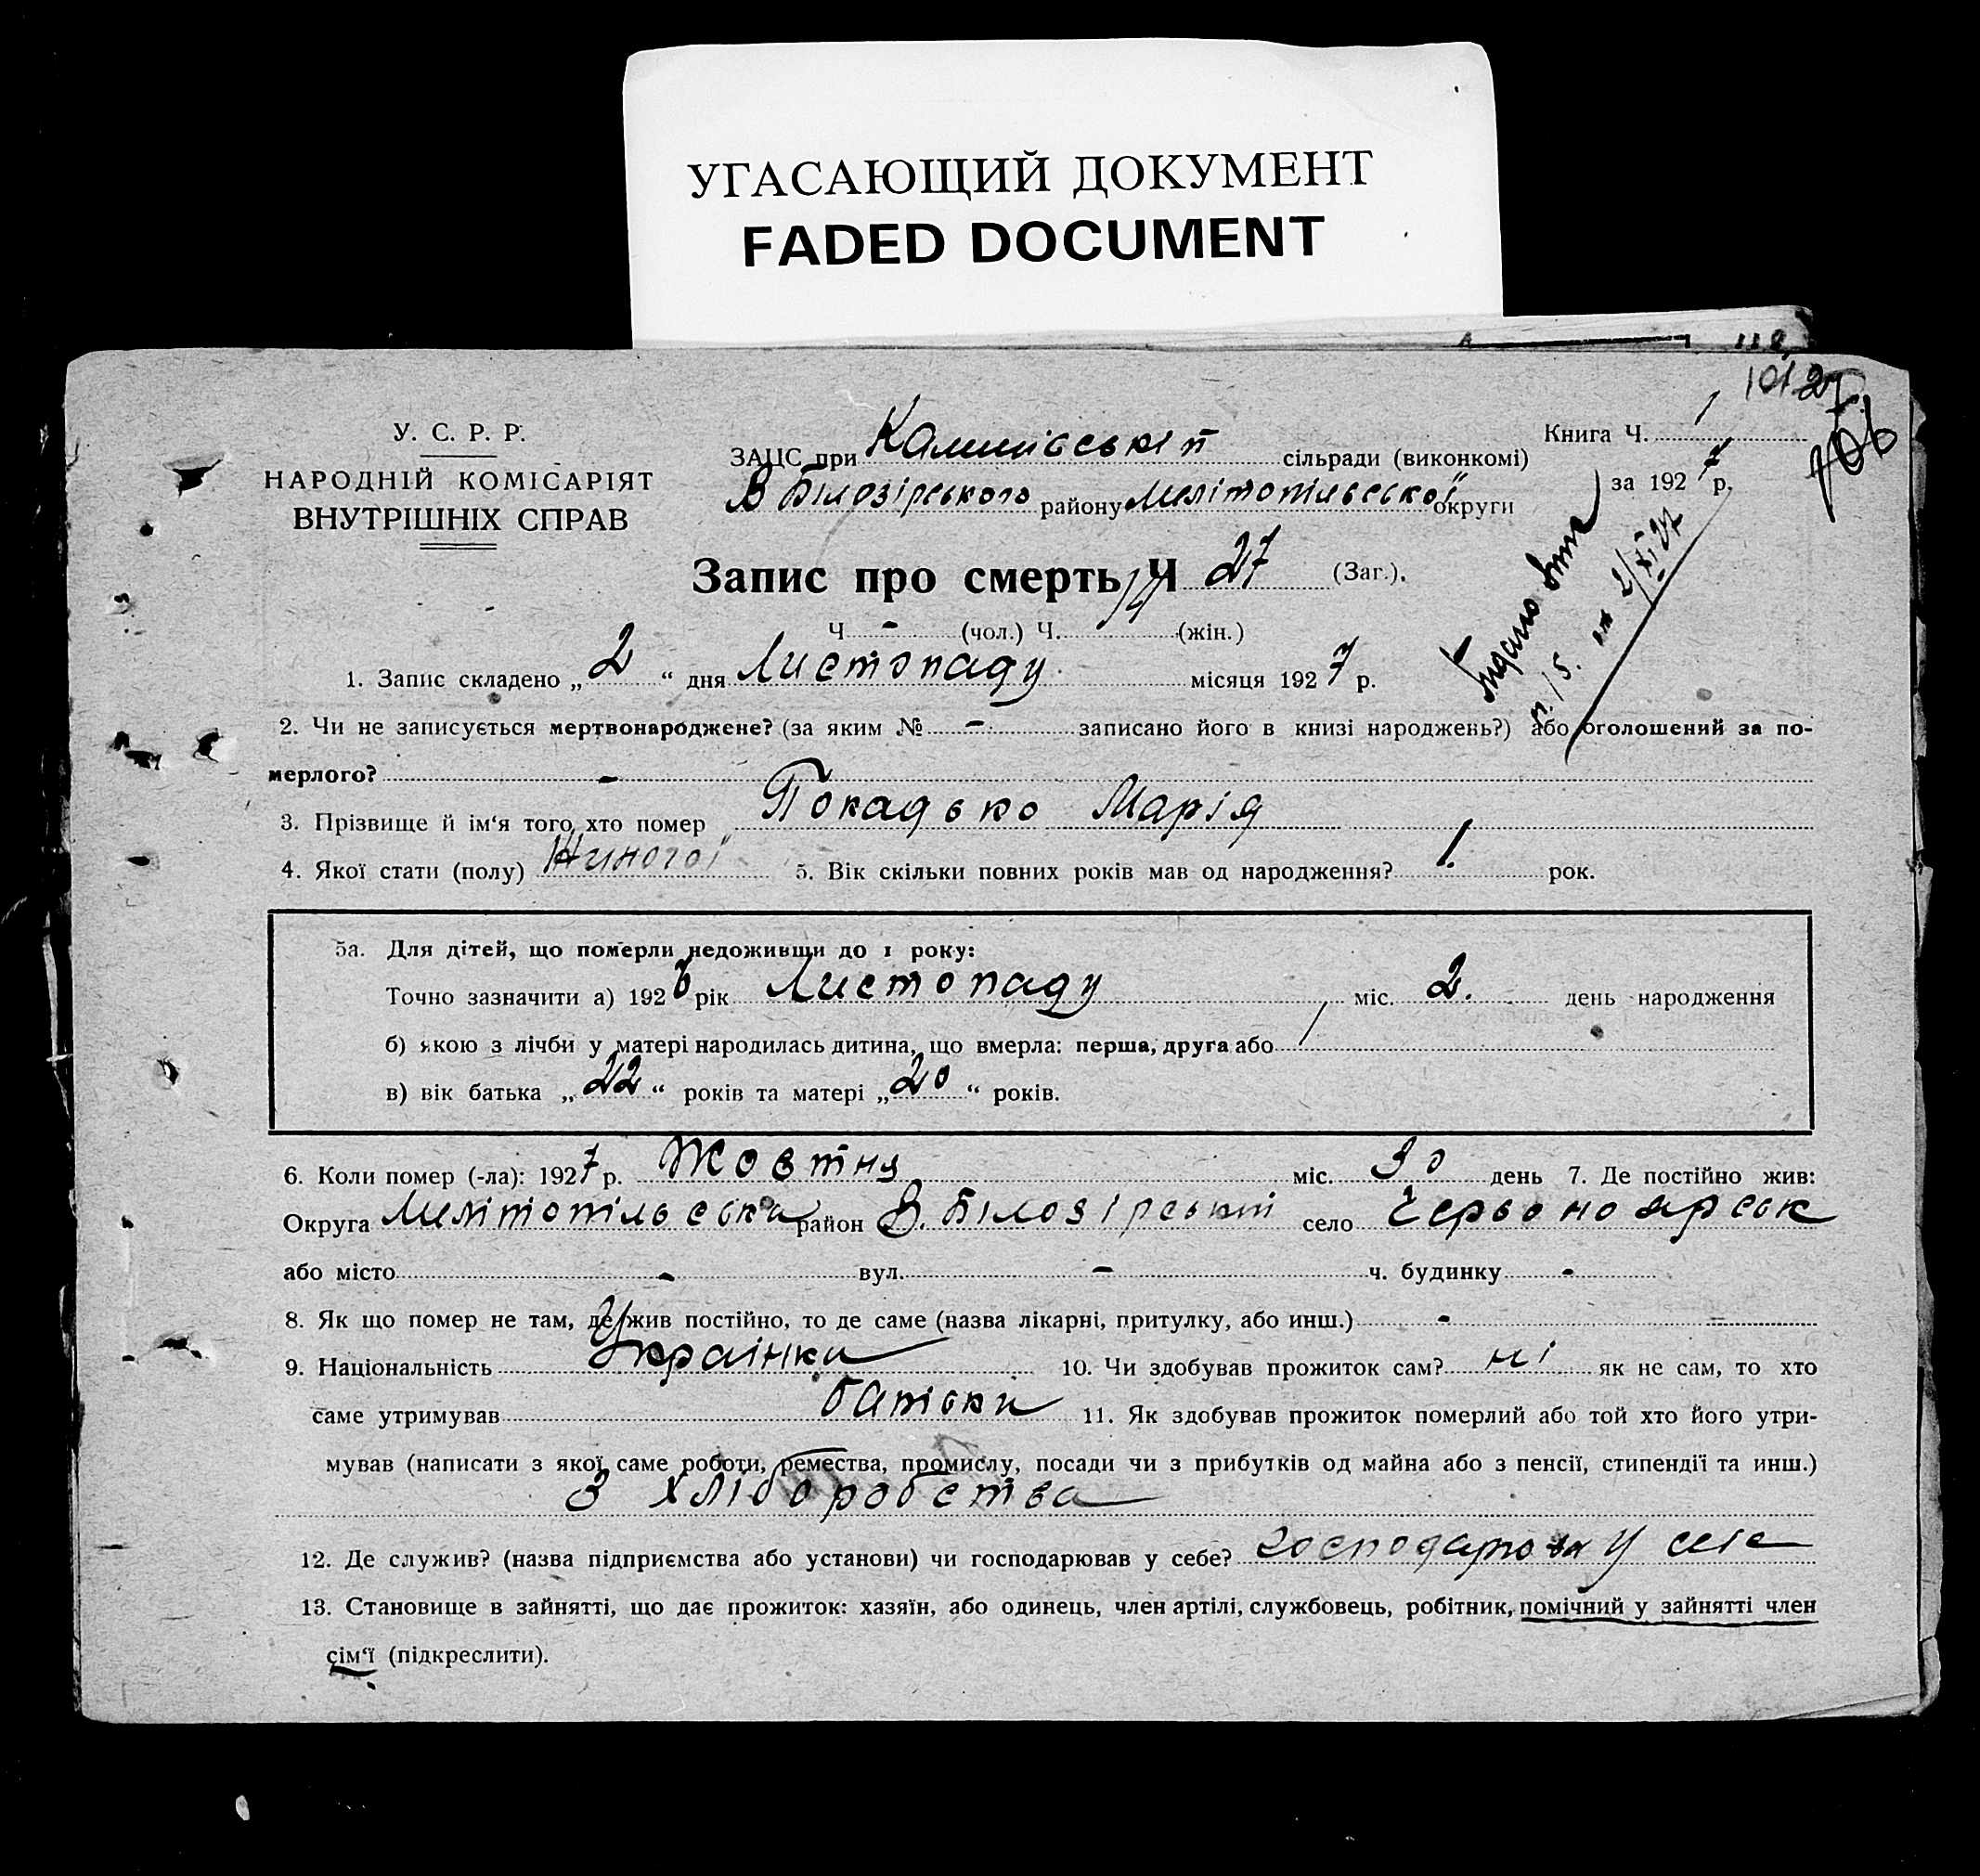 УГАСАЮЩИЙ ДОКУМЕНТ
FADED DOCUMENT
У. С. Р. Р.
НАРОДНІЙ КОМІСАРІЯТ
ВНУТРІШНІХ СПРАВ
ЗАЦС при сільради (виконкомі)
В Білозірського району Мелітопільської округи
Книга Ч. 1
за 1927 р.
Запис про смерть Ч 27 (Заг.).
Ч - (чол.) Ч. (жін.)
1. Запис складено „2“ дня Листопаду місяця 1927 р.
2. Чи не записується мертвонароджене? (за яким № - записано його в книзі народжень?) або оголошений за по-
мерлого? -
3. Прізвище й ім‘я того, хто помер Покадько Марія
4. Якої стати (полу) Жиногої 5. Вік скільки повних років мав од народження? 1. рок.
5а. Для дітей, що померли недоживши до 1 року:
Точно зазначити а) 1926 рік Листопаду міс. 2. день народження
б) якою з лічби у матері народилась дитина, що вмерла: перша, друга або 1
в) вік батька „22“ років та матері „20“ років.
6. Коли помер (-ла): 1927 р. Жовтня міс. 30 день 7. Де постійно жив:
Округа Мелітопільська район В. Білозірський село Червоноярськ
або місто - вул. - ч. будинку -
8. Як що помер не там, де жив постійно, то де саме (назва лікарні, притулку, або инш.) -
9. Національність Украінка 10. Чи здобував прожиток сам? ні як не сам, то хто
саме утримував батьки 11. Як здобував прожиток померлий або той хто його утри-
мував (написати з якої саме роботи, ремества, промислу, посади чи з прибутків од майна або з пенсії, стипендії та инш.)
З хліборобства
12. Де служив? (назва підприємства або установи) чи господарював у себе? у себе
13. Становище в зайнятті, що дає прожиток: хазяїн, або одинець, член артілі, службовець, робітник, помічний у зайнятті член
сім‘ї (підкреслити).